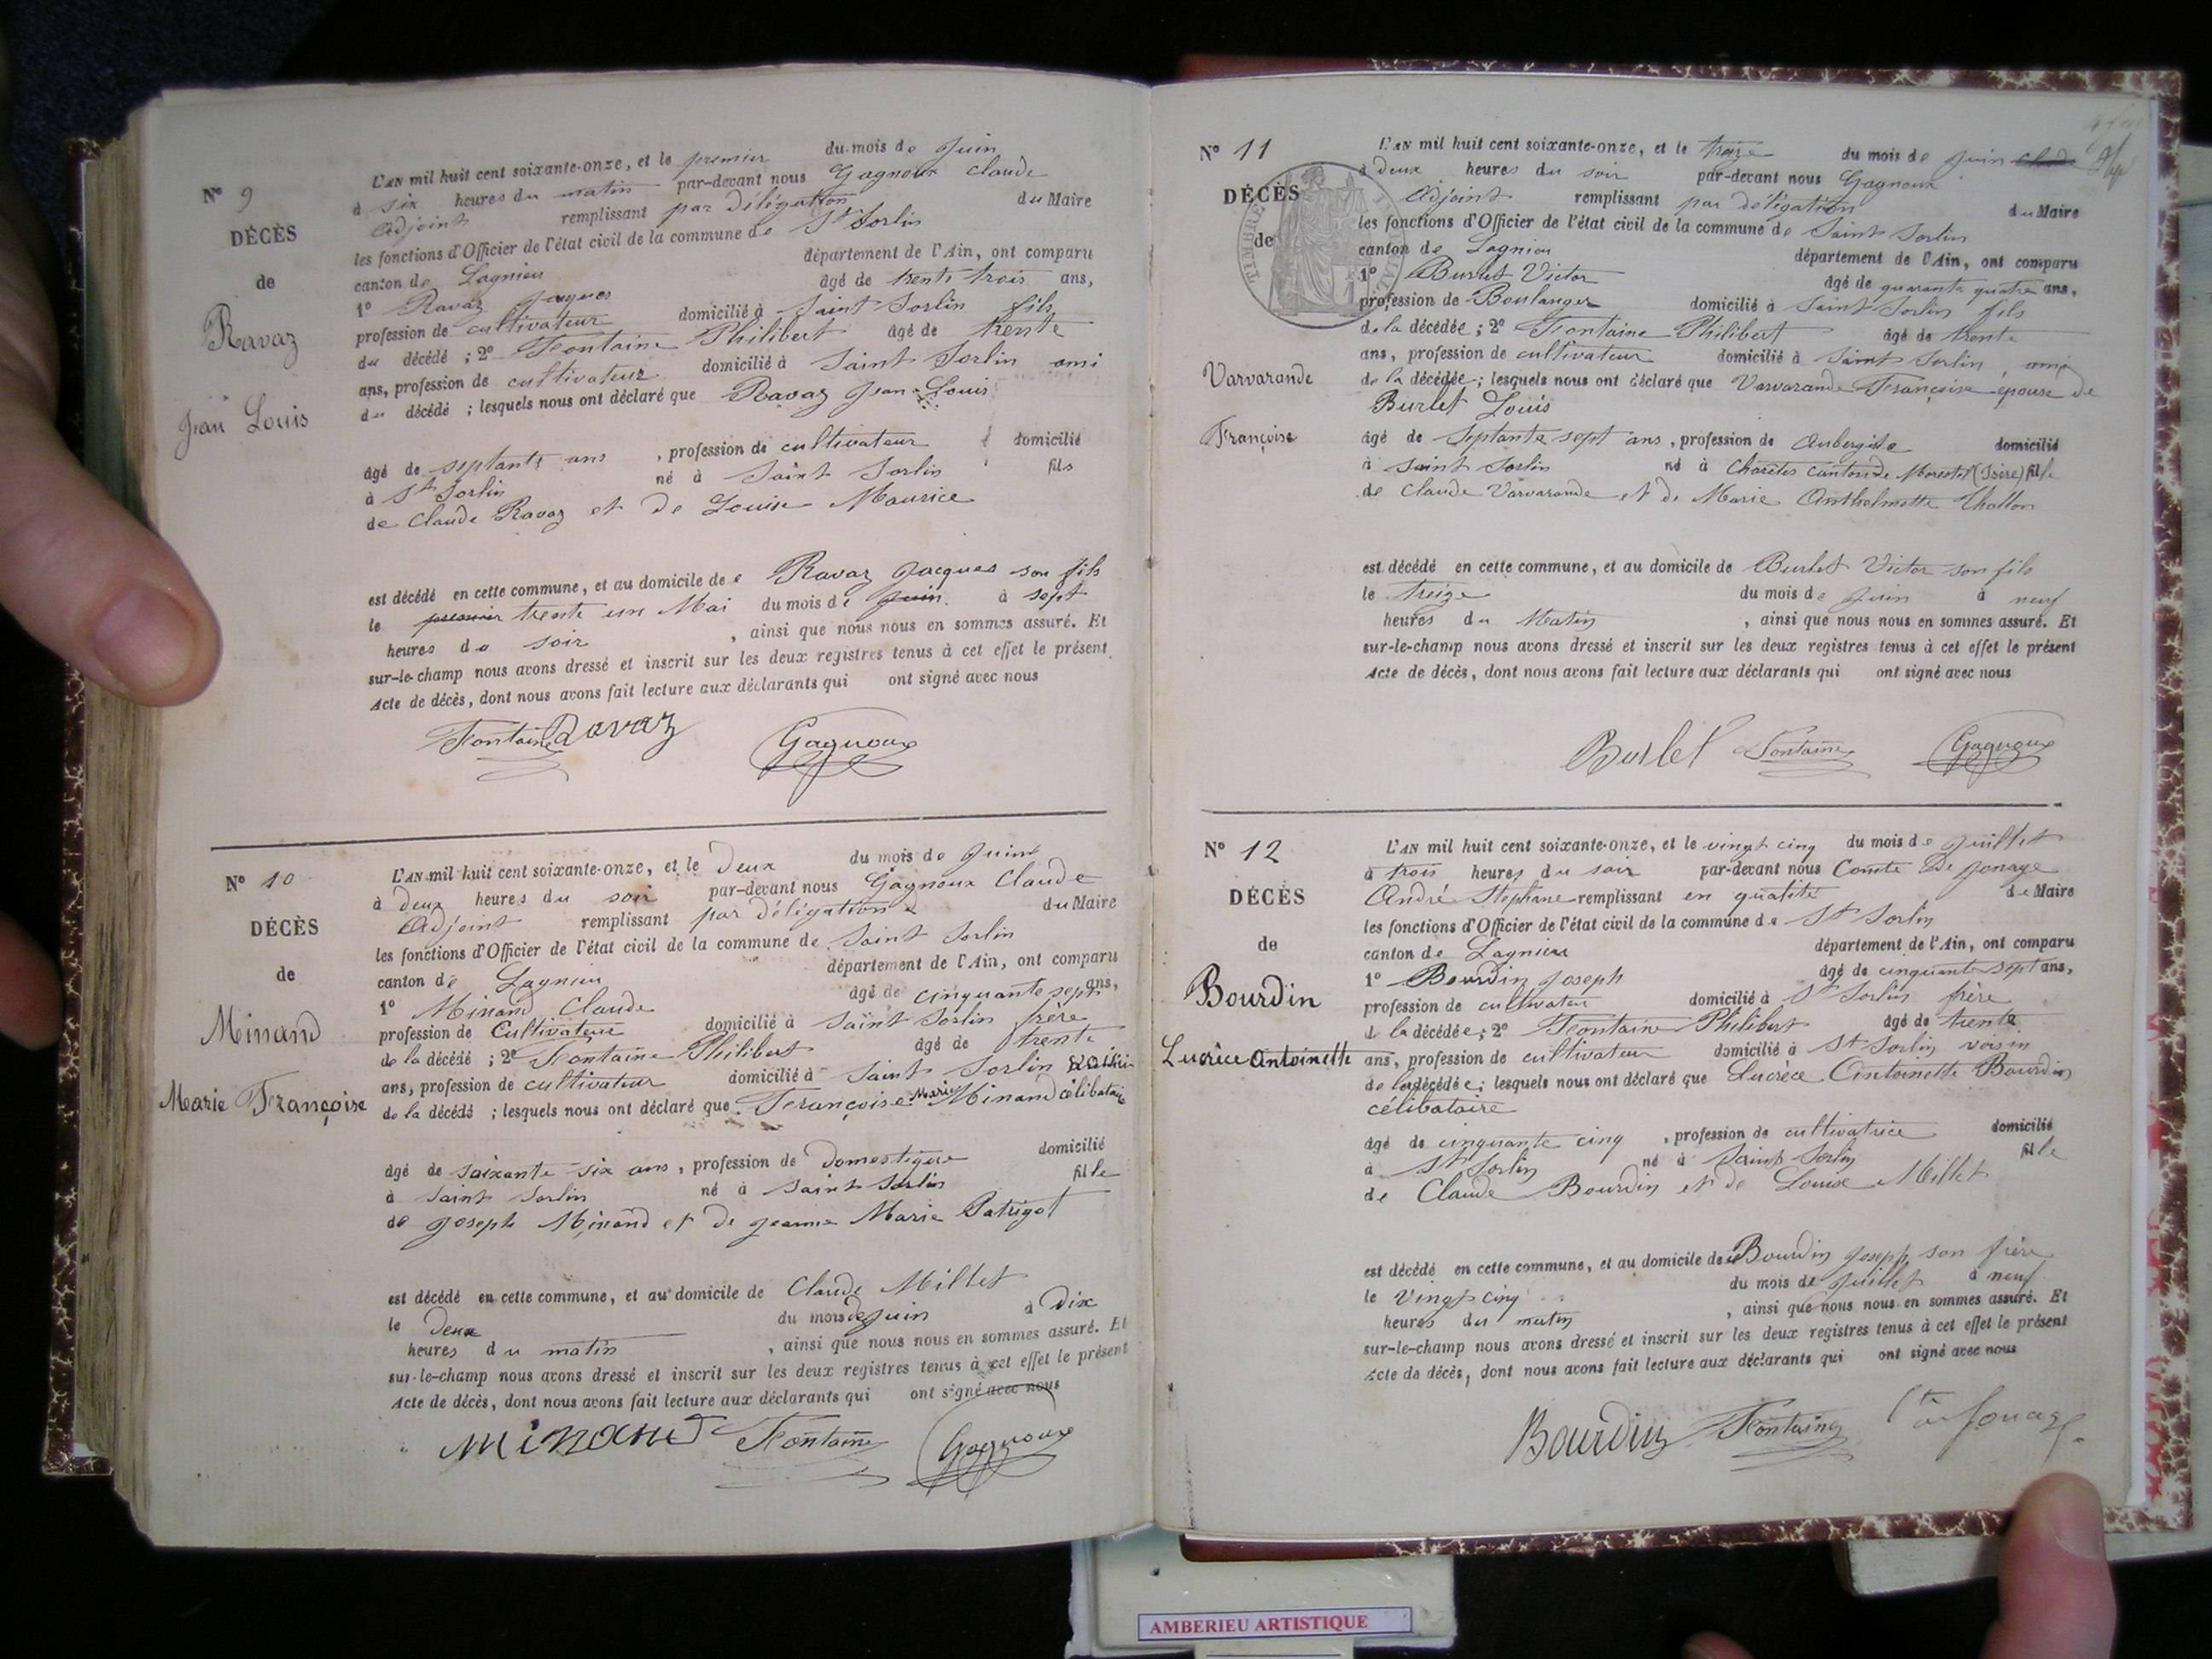 N° 9
DÉCÈS
de
Ravaz
Jean Louis
L'AN mil huit cent soixante-onze, et le premier du mois de Juin
à six heures du matin par-devant nous Gagnoux Claude
Adjoint remplissant par délégation du Maire
les fonctions d'Officier de l'état civil de la commune de St Sorlin
canton de Lagnieu département de l'Ain, ont comparu
1° Ravaz Jaques âgé de trente trois ans,
profession de cultivateur domicilié à Saint Sorlin fils
du décédé ; 2° Fontaine Philibert âgé de trente
ans, profession de cultivateur domicilié à Saint Sorlin ami
du décédé ; lesquels nous ont déclaré que Ravaz Jean-Louis
âgé de septante ans , profession de cultivateur domicilié
à St Sorlin né à Saint Sorlin fils
de Claude Ravaz et de Louise Maurice
est décédé en cette commune, et au domicile de Ravaz Jacques son fils
le premier trente un Mai du mois de Juin à sept
heures du soir , ainsi que nous nous en sommes assuré. Et
sur-le-champ nous avons dressé et inscrit sur les deux registres tenus à cet effet le présent
Acte de décès, dont nous avons fait lecture aux déclarants qui ont signé avec nous
Fontaine Ravaz Gagnoux
N° 10
DÉCÈS
de
Minand
Marie Françoise
L'AN mil huit cent soixante-onze, et le Deux du mois de Juin
à Deux heures du soir par-devant nous Gagnoux Claude
Adjoint remplissant par délégation du Maire
les fonctions d'Officier de l'état civil de la commune de Saint Sorlin
canton de Lagnieu département de l'Ain, ont comparu
1° Minand Claude âgé de cinquante sept ans,
profession de Cultivateur domicilié à Saint Sorlin frère
de la décédé ; 2° Fontaine Philibert âgé de trente
ans, profession de cultivateur domicilié à Saint Sorlin voisin
de la décédé ; lesquels nous ont déclaré que Françoise Marie Minand célibataire
âgé de soixante-six ans , profession de Domestique domicilié
à Saint Sorlin né à Saint Sorlin fille
de Joseph Minand et de Jeanne Marie Patrigot
est décédé en cette commune, et au domicile de Claude Millet
le Deux du mois de Juin à Dix
heures du matin , ainsi que nous nous en sommes assuré. Et
sur-le-champ nous avons dressé et inscrit sur les deux registres tenus à cet effet le présent
Acte de décès, dont nous avons fait lecture aux déclarants qui ont signé avec nous
Minand Fontaine Gagnoux
N° 11
DÉCÈS
de
Varvarande
Françoise
TIMBRE
L'AN mil huit cent soixante-onze, et le treize du mois de Juin
à deux heures du soir par-devant nous Gagnoux
Adjoint remplissant par délégation du Maire
les fonctions d'Officier de l'état civil de la commune de Saint Sorlin
canton de Lagnieu département de l'Ain, ont comparu
1° Burlet Victor âgé de quarante quatre ans,
profession de Boulanger domicilié à Saint Sorlin fils
de la décédée ; 2° Fontaine Philibert âgé de trente
ans, profession de cultivateur domicilié à Saint Sorlin, ami
de la décédée ; lesquels nous ont déclaré que Varvarande Françoise épouse de
Burlet Louis
âgé de septante sept ans , profession de Aubergiste domicilié
à Saint Sorlin né à Charètes canton de Morestel (Isère) fille
de Claude Varvarande et de Marie Anthelmette Thollon
est décédé en cette commune, et au domicile de Burlet Victor son fils
le treize du mois de Juin à neuf
heures du Matin , ainsi que nous nous en sommes assuré. Et
sur-le-champ nous avons dressé et inscrit sur les deux registres tenus à cet effet le présent
Acte de décès, dont nous avons fait lecture aux déclarants qui ont signé avec nous
Burlet Fontaine Gagnoux
N° 12
DÉCÈS
de
Bourdin
Lucrèce Antoinette
L'AN mil huit cent soixante-onze, et le vingt cinq du mois de Juillet
à trois heures du soir par-devant nous Comte De Jonage
André Stephane remplissant en qualité de Maire
les fonctions d'Officier de l'état civil de la commune de St Sorlin
canton de Lagnieu département de l'Ain, ont comparu
1° Bourdin Joseph âgé de cinquante sept ans,
profession de cultivateur domicilié à St Sorlin frère
de la décédée ; 2° Fontaine Philibert âgé de trente
ans, profession de cultivateur domicilié à St Sorlin voisin
de la décédée ; lesquels nous ont déclaré que Lucrèce Antoinette Bourdin
célibataire
âgé de cinquante cinq , profession de cultivatrice domicilié
à St Sorlin né à Saint Sorlin fille
de Claude Bourdin et de Louise Millet
est décédé en cette commune, et au domicile de Bourdin Joseph, son frère
le Vingt cinq du mois de Juillet à neuf
heures du matin , ainsi que nous nous en sommes assuré. Et
sur-le-champ nous avons dressé et inscrit sur les deux registres tenus à cet effet le présent
Acte de décès, dont nous avons fait lecture aux déclarants qui ont signé avec nous
Bourdin Fontaine Cte de Jonage
AMBERIEU ARTISTIQUE